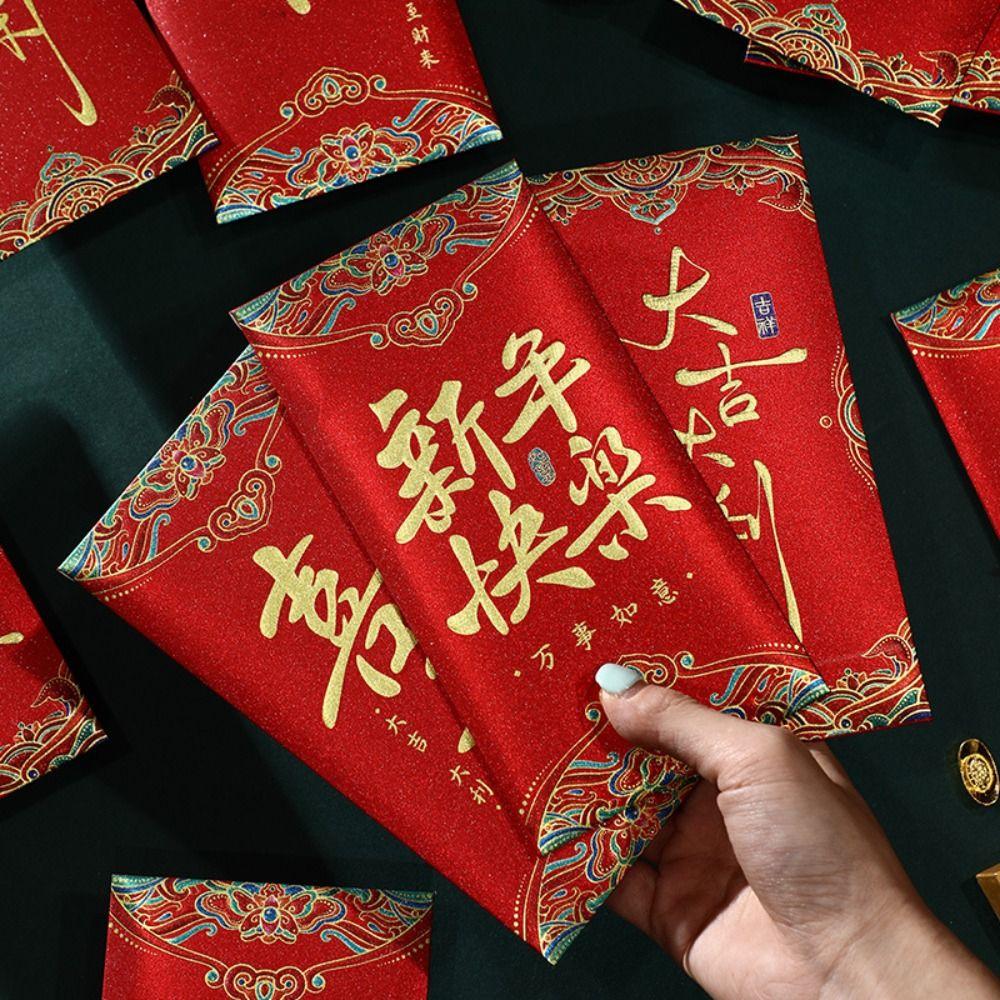 至财来
新年
快樂
万事如意
大吉大利
吉祥
喜
大吉大利